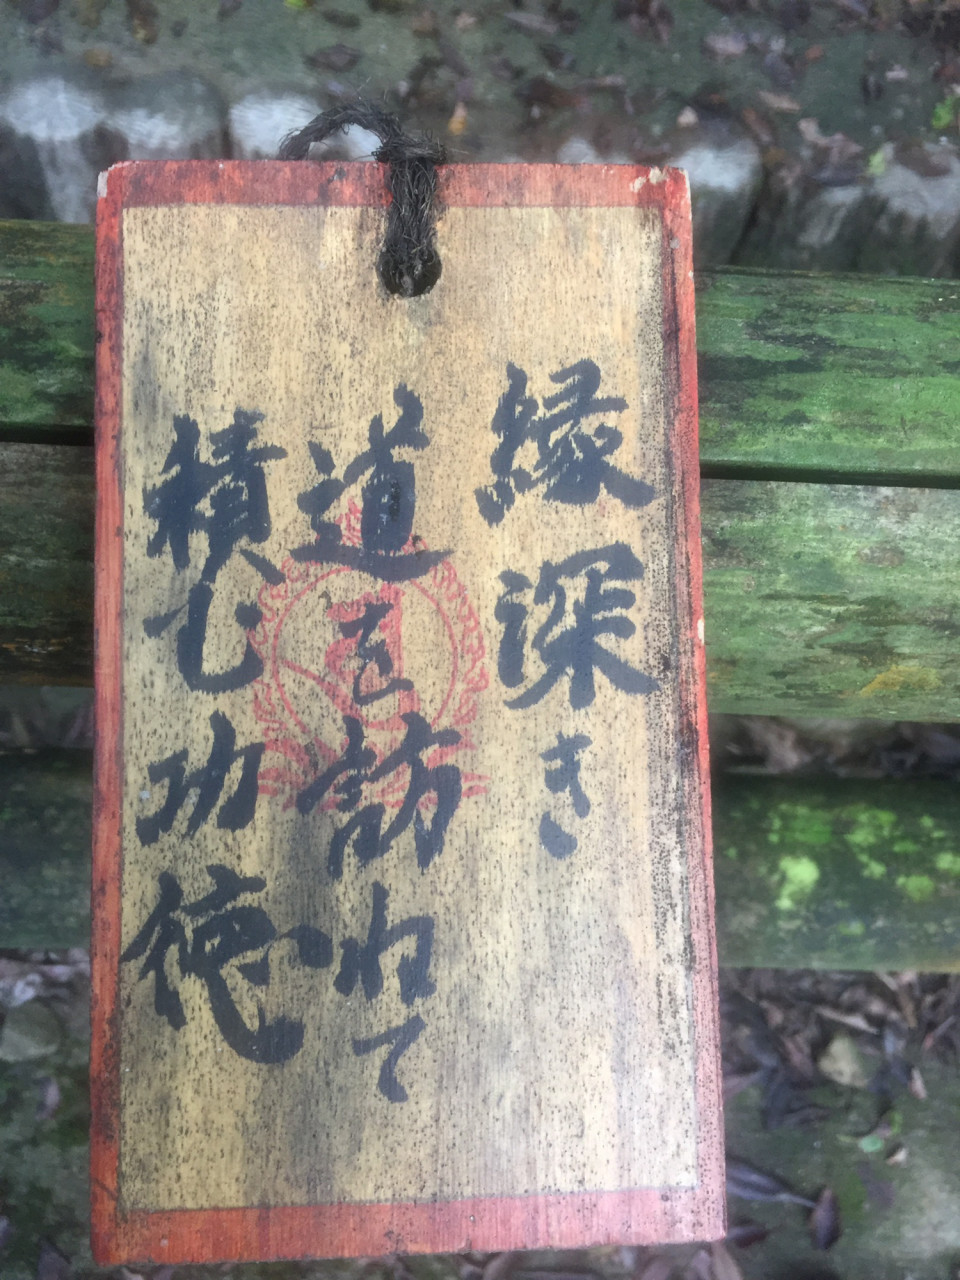 縁深き
道を訪ねて
積む功徳